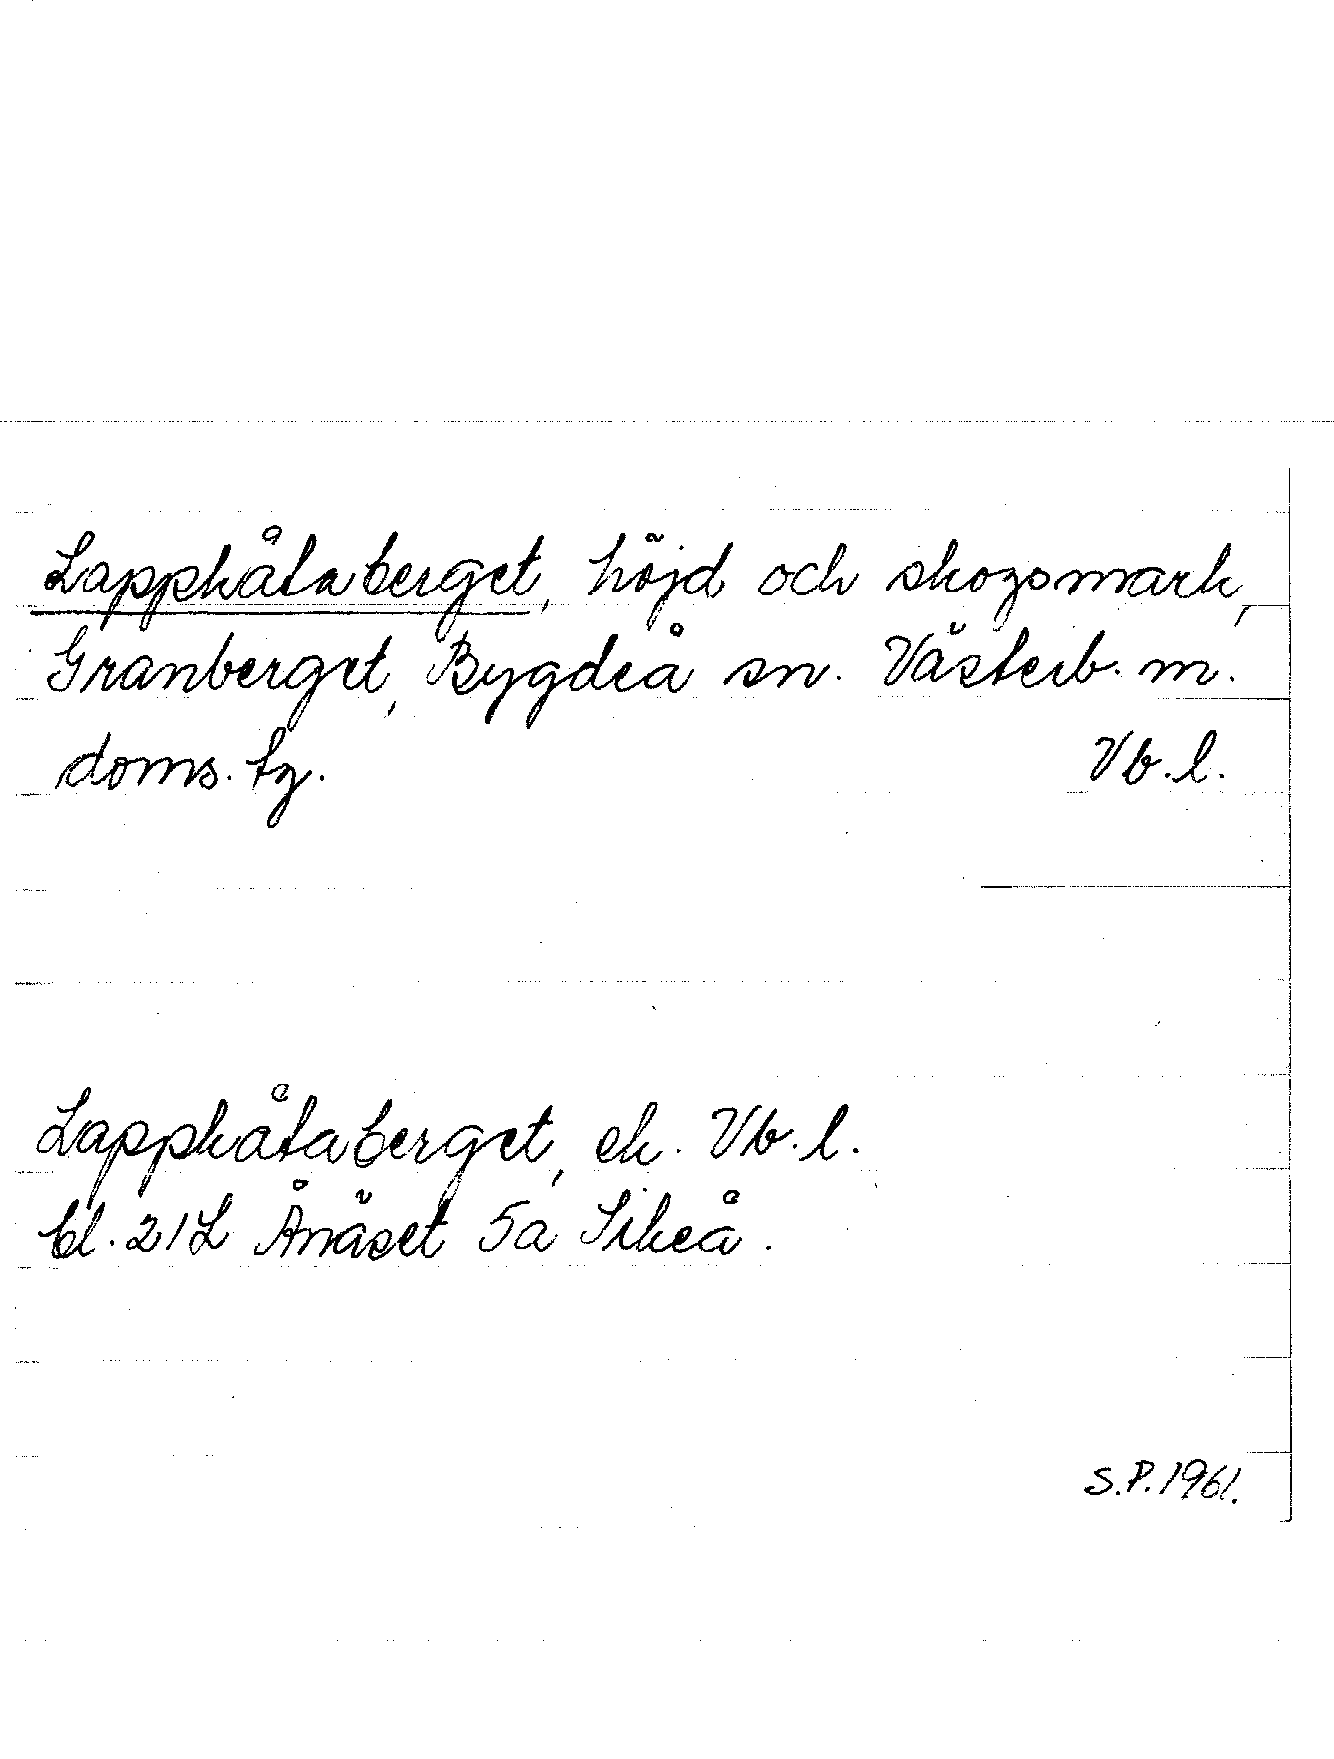 Lappkåtaberget, höjd och skogsmark,
Granberget, Bygdeå sn. Västerb. m.
doms. tg. Vb. l.
Lappkåtaberget, ek. Vb. l.
bl. 21L Ånäset 5a Sikeå.
S.P. 1961.